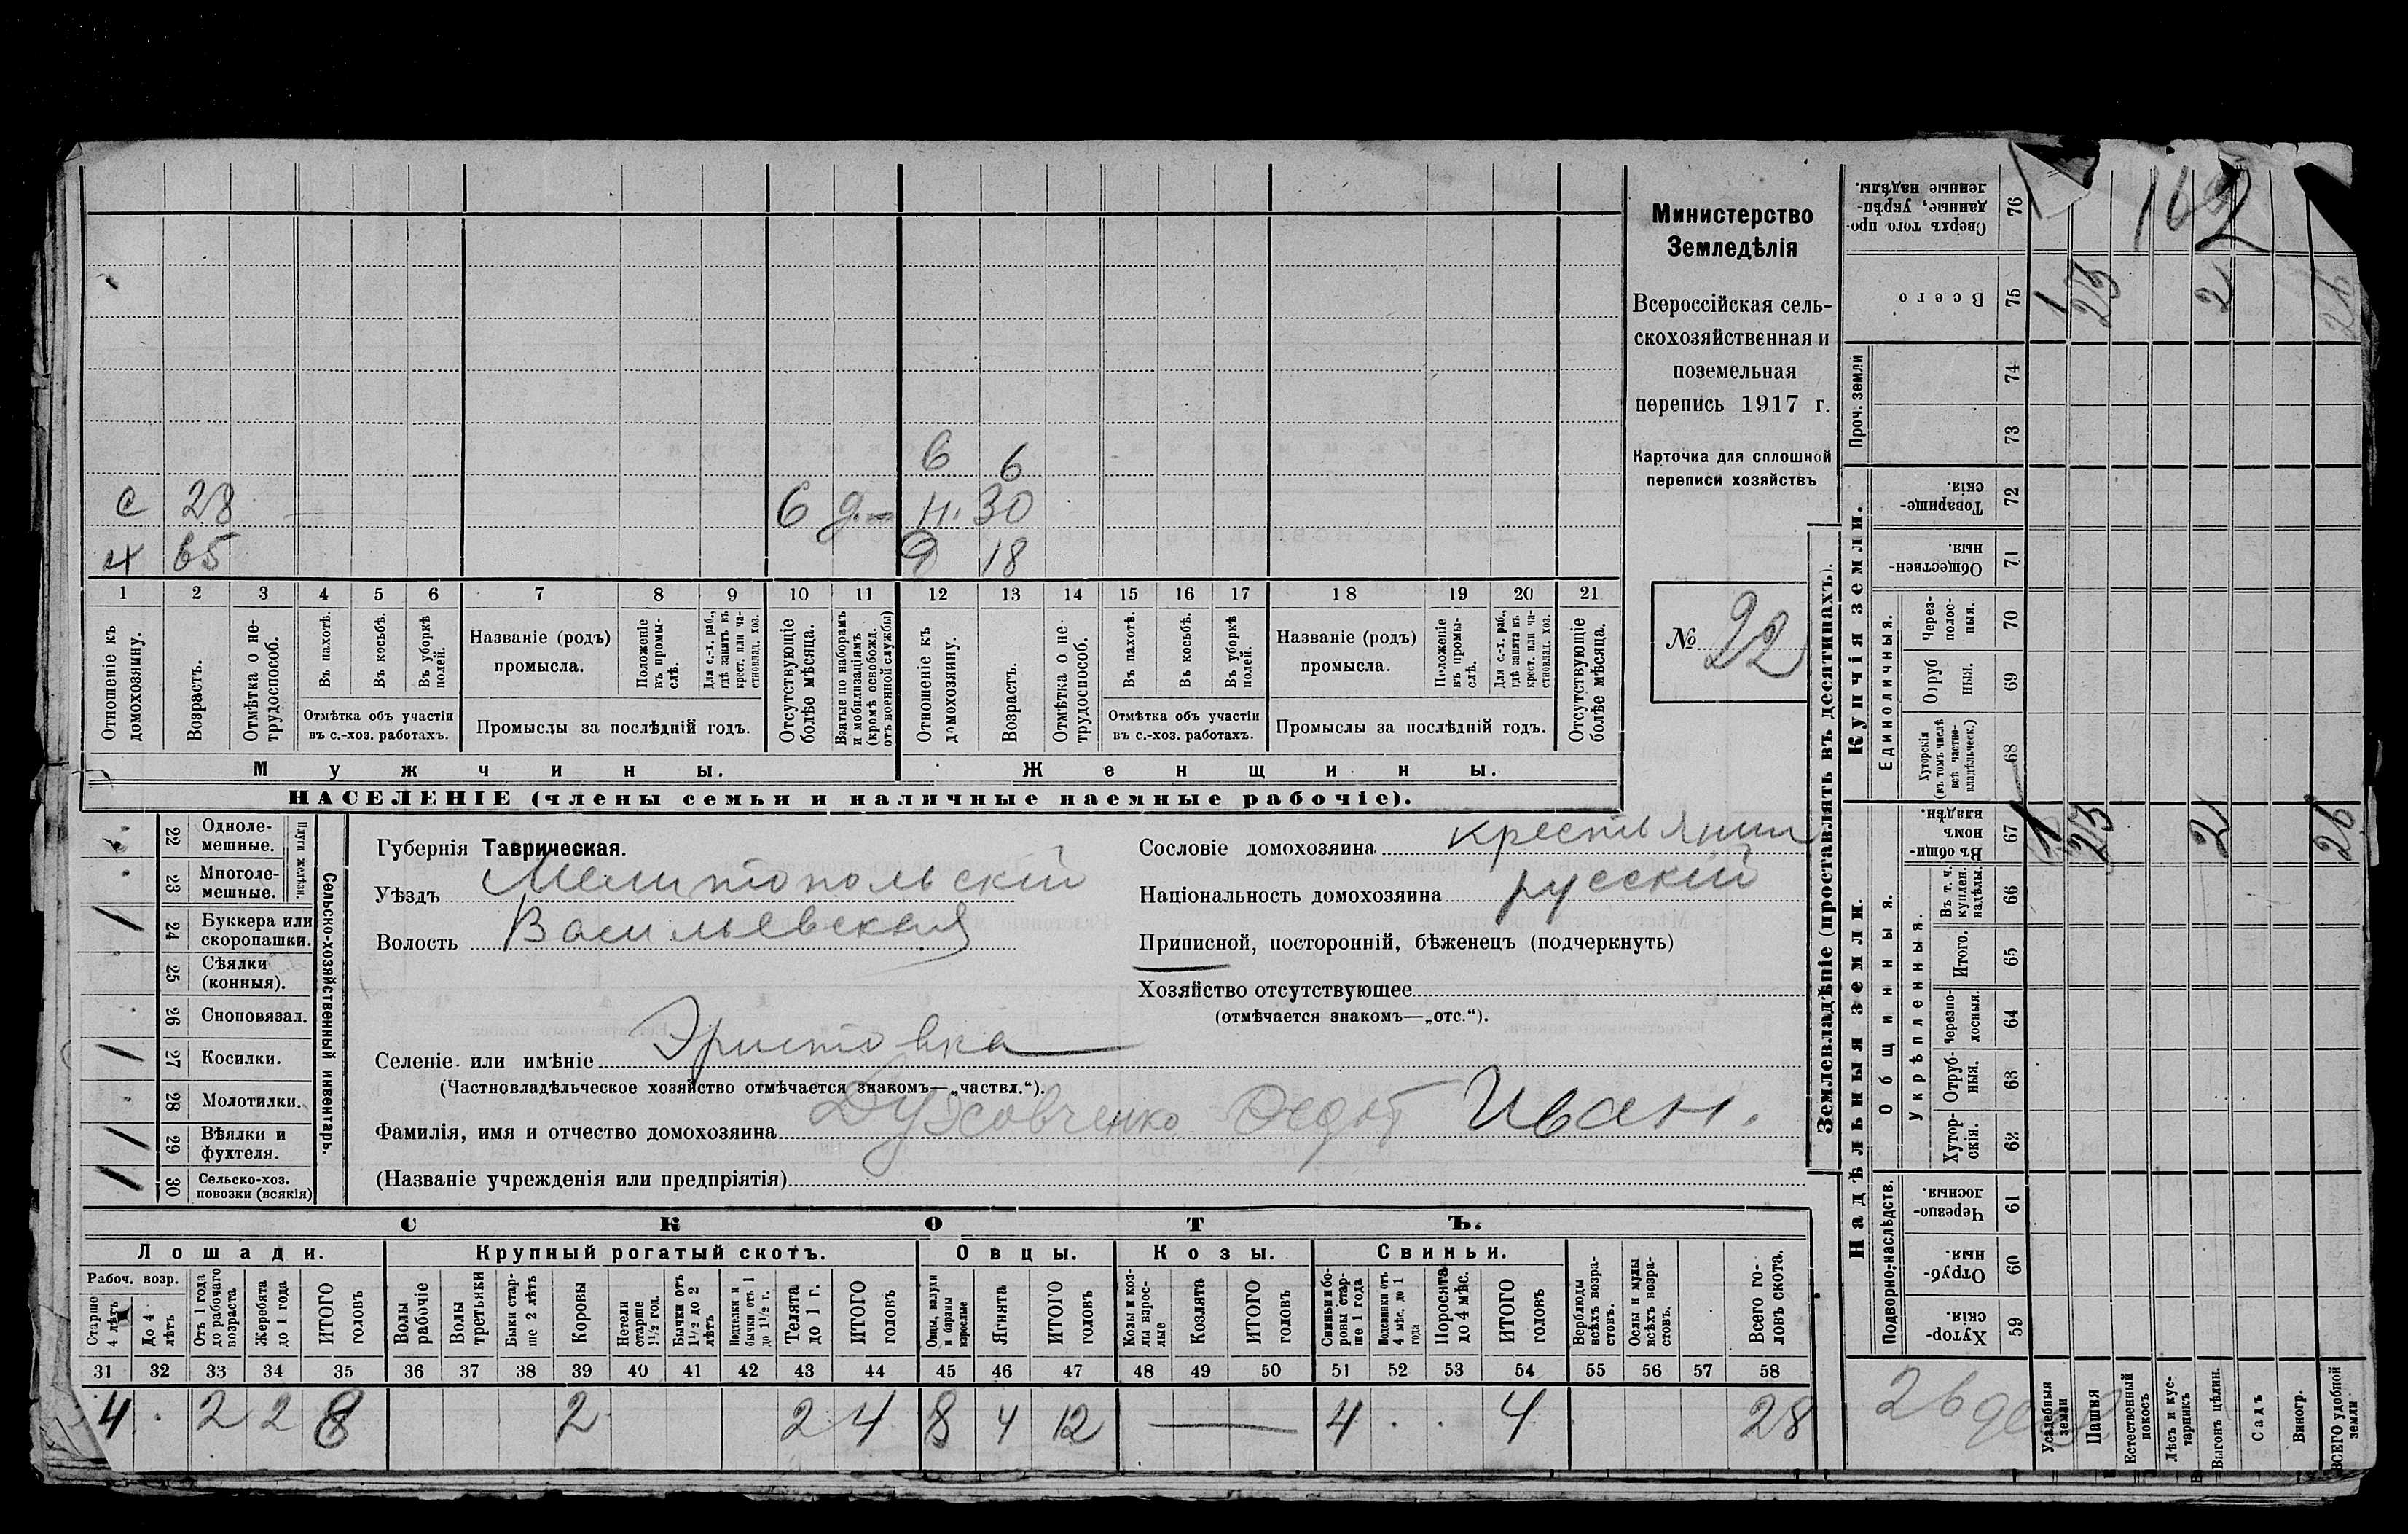 162
с 28 6 д.— н. 30
6 6
х 65 д 18
1 2 3 4 5 6 7 8 9 10 11 12 13 14 15 16 17 18 19 20 21
Отношеніе къ домохозяину.
Возрастъ.
Отмѣтка о не-трудоспособ.
Въ пахотѣ.
Въ косьбѣ.
Въ уборкѣ полей.
Отмѣтка объ участіи въ с.-хоз. работахъ.
Названіе (родъ) промысла.
Положеніе въ промы-слѣ.
Для с.-х. раб., гдѣ занятъ въ крест. или ча-стновлад. хоз.
Промыслы за послѣдній годъ.
Отсутствующіе болѣе мѣсяца.
Взятые по наборамъ и мобилизаціямъ (кромѣ освобожд. отъ военной службы)
Отношеніе къ домохозяину.
Возрастъ.
Отмѣтка о не-трудоспособ.
Въ пахотѣ.
Въ косьбѣ.
Въ уборкѣ полей.
Отмѣтка объ участіи въ с.-хоз. работахъ.
Названіе (родъ) промысла.
Положеніе въ промы-слѣ.
Для с.-х. раб., гдѣ занята въ крест. или ча-стновлад. хоз.
Промыслы за послѣдній годъ.
Отсутствующіе болѣе мѣсяца.
Мужчины. Женщины.
НАСЕЛЕНІЕ (члены семьи и наличные наемные рабочіе).
Министерство
Земледѣлія
Всероссійская сель-
скохозяйственная и
поземельная
перепись 1917 г.
Карточка для сплошной
переписи хозяйствъ
№ 22
Сельско-хозяйственный инвентарь.
Плуги желѣзн.
22 Одноле-мешные.
23 Многоле-мешные.
/ 24 Буккера или скоропашки.
25 Сѣялки (конныя).
26 Сноповязал.
/ 27 Косилки.
28 Молотилки.
/ 29 Вѣялки и фухтеля.
/ 30 Сельско-хоз. повозки (всякія)
Губернія Таврическая.
Уѣздъ Мелитопольскій
Волость Васильевская
Сословіе домохозяина крестьянин
Національность домохозяина русскій
Приписной, посторонній, бѣженецъ (подчеркнуть)
Хозяйство отсутствующее
(отмѣчается знакомъ—„отс.“).
Селеніе или имѣніе Эристовка
(Частновладѣльческое хозяйство отмѣчается знакомъ—„частвл.“).
Фамилія, имя и отчество домохозяина Духовченко Федот Иван.
(Названіе учрежденія или предпріятія)
СКОТЪ.
Лошади. Крупный рогатый скотъ. Овцы. Козы. Свиньи.
Рабоч. возр.
Старше 4 лѣтъ
До 4 лѣтъ
Отъ 1 года до рабочаго возраста
Жеребята до 1 года
ИТОГО головъ
Волы рабочіе
Волы третьяки
Быки стар-ше 2 лѣтъ
Коровы
Нетели старше 1½ год.
Бычки отъ 1½ до 2 лѣтъ
Нетелки и бычки отъ 1 до 1½ г.
Телята до 1 г.
ИТОГО головъ
Овцы, валухи и бараны взрослые
Ягнята
ИТОГО головъ
Козы и коз-лы взрос-лые
Козлята
ИТОГО головъ
Свиньи и бо-ровы стар-ше 1 года
Подсвинки отъ 4 мѣс. до 1 года
Поросята до 4 мѣс.
ИТОГО головъ
Верблюды всѣхъ возра-стовъ.
Ослы и мулы всѣхъ возра-стовъ.
Всего го-ловъ скота.
31 32 33 34 35 36 37 38 39 40 41 42 43 44 45 46 47 48 49 50 51 52 53 54 55 56 57 58
4 2 2 8 2 2 4 8 4 12 — 4 4 28
Землевладѣніе (проставлять въ десятинахъ).
Купчія земли.
Надѣльныя земли.
76 Сверхъ того про-данные, укрѣп-ленные надѣлы.
75 Всего 1 23 2 26
Проч. земли
74
73
72 Товарище-скія.
71 Обществен-ныя.
Единоличныя.
70 Через-полос-ныя.
69 Отруб ныя.
68 Хуторскія (въ томъ числѣ всѣ частно-владѣльческ.)
67 Въ общи-номъ владѣн. 1 23 2 26
Общинныя.
Укрѣпленныя.
66 Въ т. ч. куплен. надѣлы.
65 Итого.
64 Черезпо-лосныя.
63 Отруб-ныя.
62 Хутор-скія.
Подворно-наслѣдств.
61 Черезпо-лосныя.
60 Отруб-ныя.
59 Хутор-скія.
26 дес
Усадебныя земли
Пашня
Естественный покосъ
Лѣсъ и кус-тарникъ
Выгонъ цѣлин.
Садъ
Виногр.
ВСЕГО удобной земли